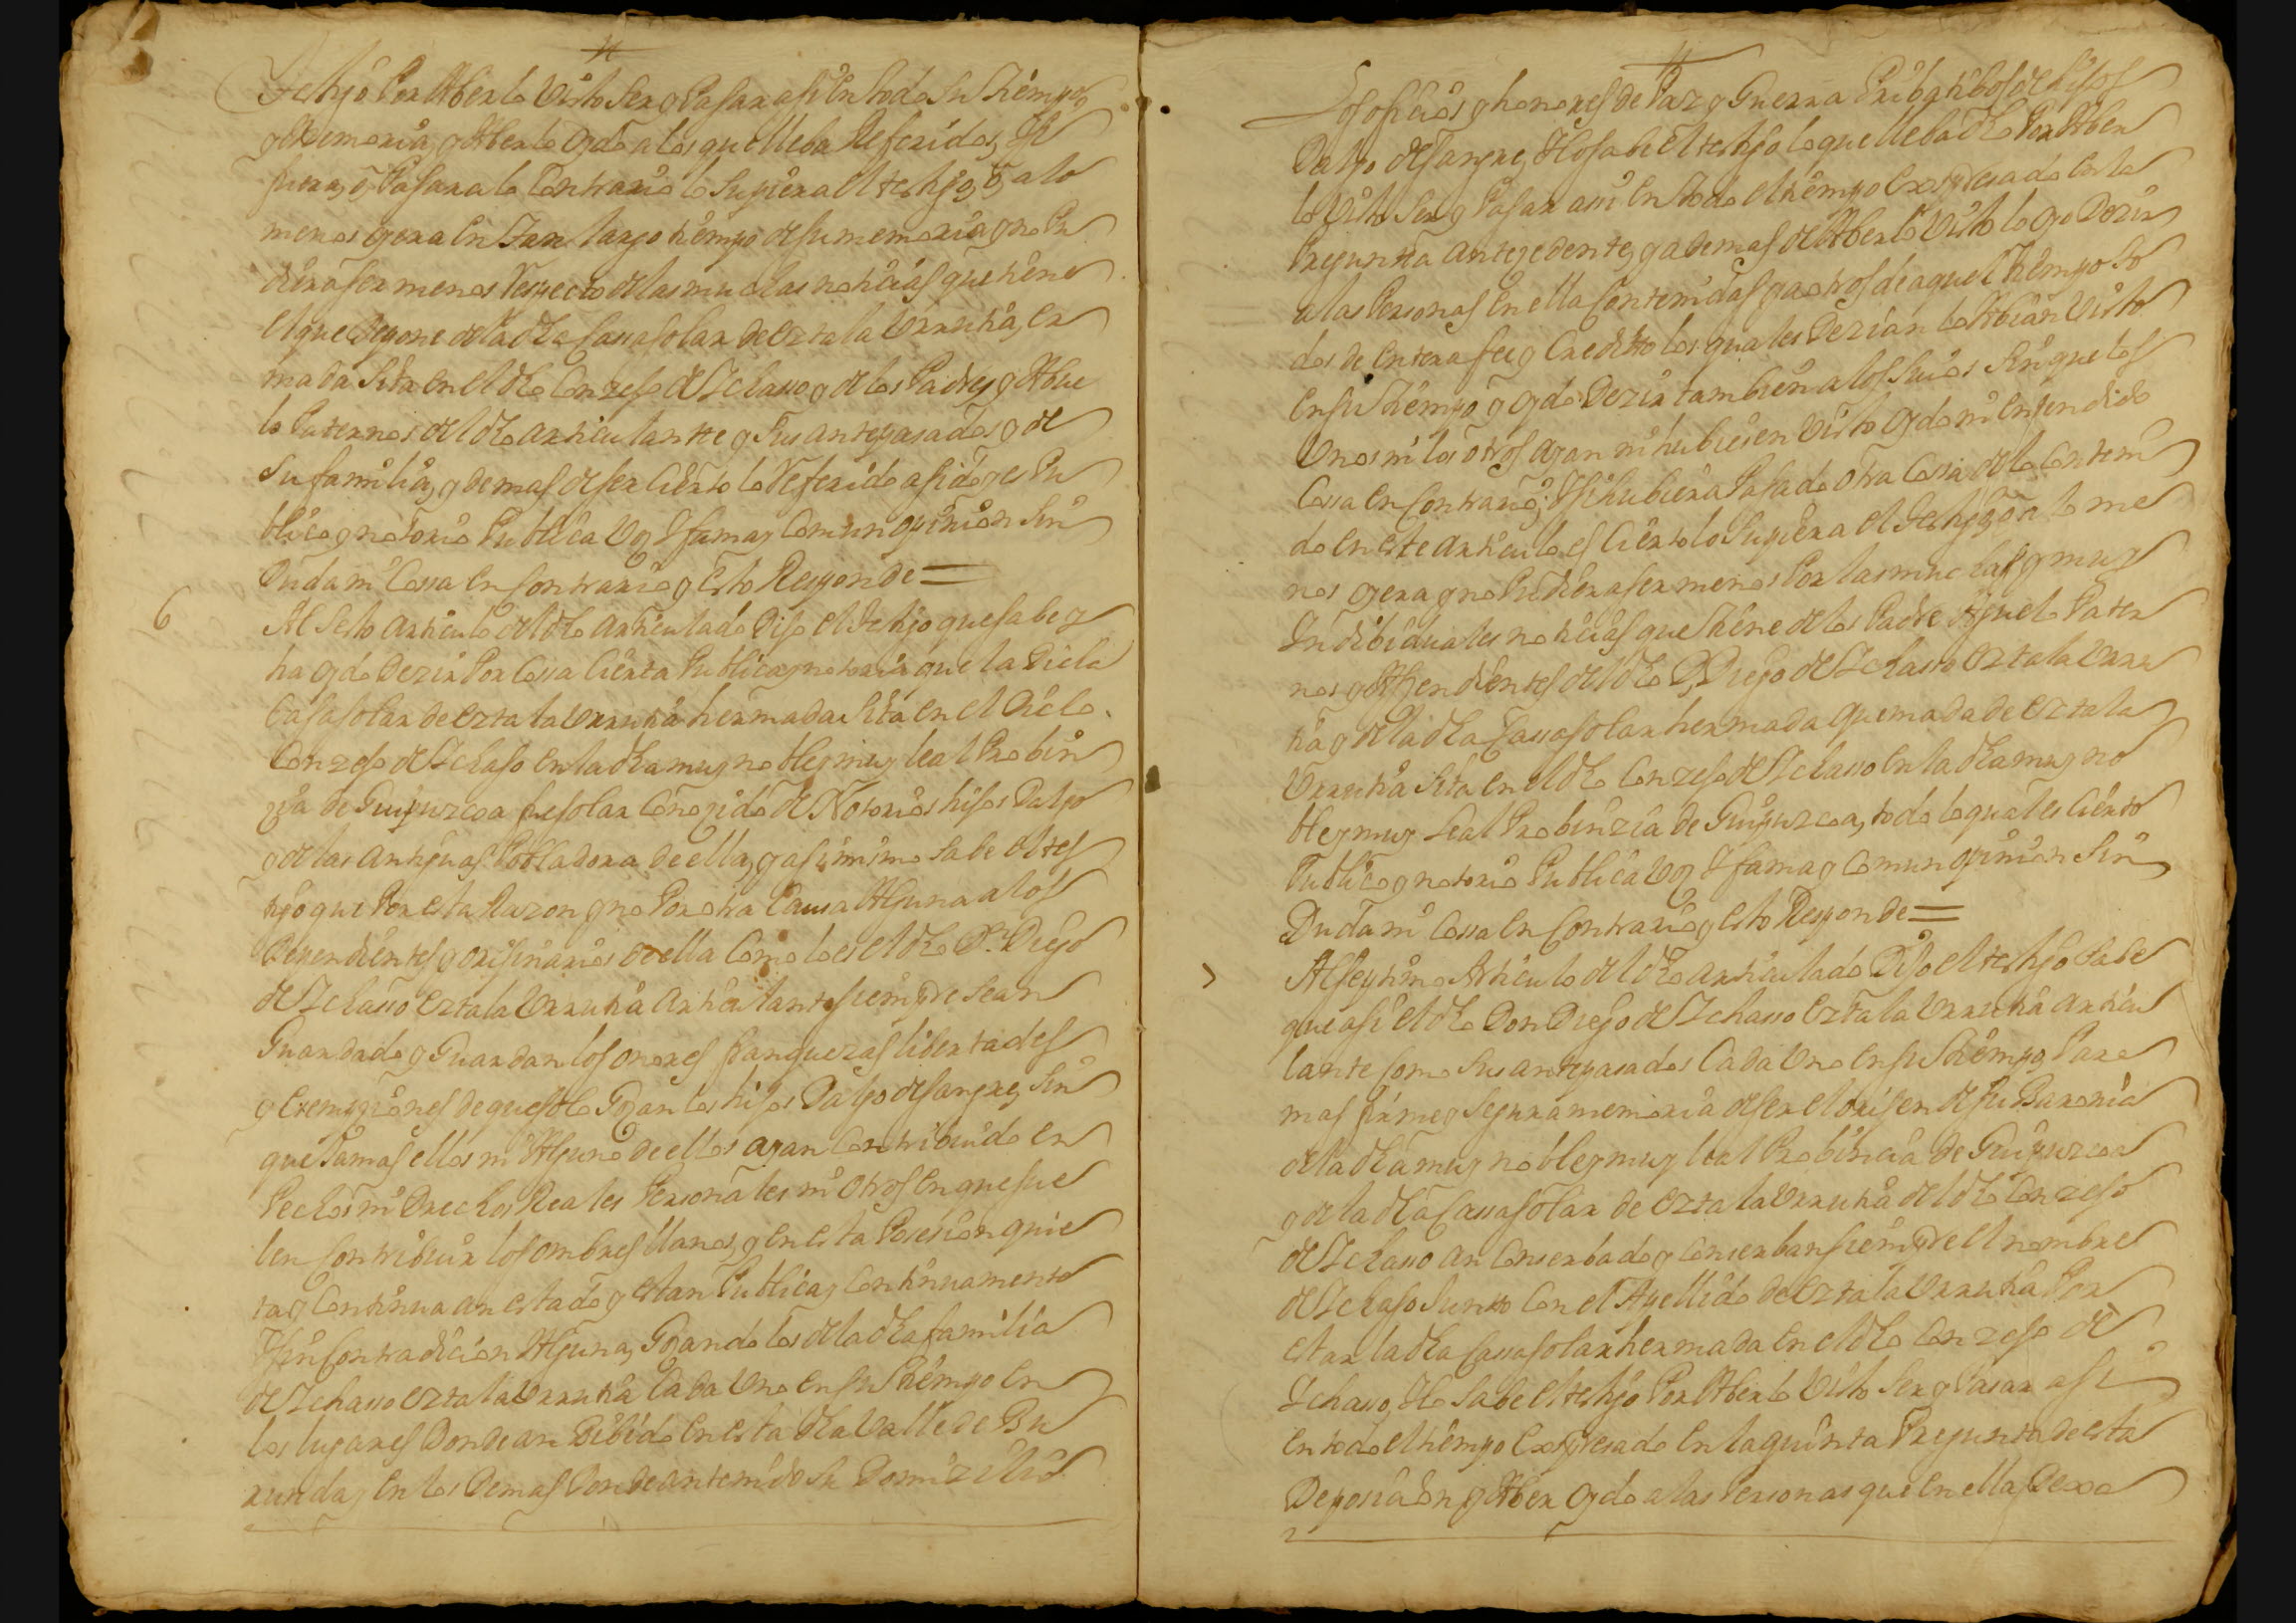 testigo Por Aberlo Visto Ser y Pasar asi En todo Su tiempo
y Memoria, y Aberlo Oydo a los que lleba Referidos, y Si
fuera, o Pasara lo Contrario lo Supiera el testigo, o, a lo
menos oyera en tan largo tiempo de su memoria y no Pu
diera ser menos Respecto de las muchas noticias que tiene
el que depone de la dha Cassa solar de Oztala Urrutia, er
mada Sita en el dho Conzejo de Ichasso y de los Padres y Abue
lo Paternos del dho articulante y Sus antepasados y de
Su familia, y demas de ser Cierto lo Referido a sido y es Pu
blico y notorio Publica Voz y fama y Comun opinion Sin
Duda ni Cossa en Contrario y Esto Responde =
6 Al Sesto articulo del dho articulado Dijo el testigo que sabe y
ha oydo Dezir Por Cossa Cierta Publica y notoria que la Dicha
Casa solar de Oztala Urrutia hermada Sita en el Dicho
Conzejo de Ichaso en la dha muy noble y muy leal Probin
zia de Guipuzcoa fue solar Conozido de Notorios hijos Dalgo
y de las antiguas Pobladora de ella, y asimismo Sabe el tes
tigo que Por esta Razon y no Por otra Caussa Alguna a los
Dependientes y orijinarios de ella Como lo es el dho Dn Diego
de Ichasso Oztala Urrutia articulante siempre se an
Guardado y Guardan los onores franquezas libertades
y Exempziones de que solo Gozan los hijos Dalgo de sangre, Sin
que Jamas ellos ni Alguno de ellos ayan Contribuido en
Pechos ni Drechos Reales Personales ni otros en que sue
len Contribuir los ombres llanos, y en esta Posesion quie
ta y Continua an estado y estan Publica y Continuamente
y sin Contradicion Alguna, Gozando los de la dha familia
de Ichasso Oztala Urrutia Cada Uno en su tiempo En
los lugares Donde an Bibido en esta dha Valle de Bu
runda y en los Demas Donde an tenido Su Domizilio
Los ofizios y honores de Paz y Guerra Pribatibos de hijos
Dalgo de sangre, y lo sabe el testigo lo que lleba dho Por Aber
lo Visto Ser y Pasar assi en todo el tiempo Expresado en la
Pregunta antezedente, y ademas de Aberlo Visto lo oyo Dezir
a las Personas en ella Contenidas y a otros de aquel tiempo to
dos de entera fee y Credito los quales Dezian lo Abian Visto
en su tiempo y oydo Dezir tambien a los Suios Sin que los
Unos ni los otros ayan ni hubiesen Visto oydo ni entendido
Cossa en Contrario; y si hubiera Pasado otra Cossa de lo Conteni
do en este articulo es Cierto lo Supiera el testigo o a lo me
nos oyera y no Pudiera ser menos Por las muchas y muy
Indibiduales noticias que tiene de los Padre Aguelo Pater
nos y Aszendientes del dho Dn Diego de Ichasso Oztala Urru
tia y de la dha Cassa solar hermada quemada de Oztala
Urrutia Sita en el dho Conzejo de Ichasso en la dha muy no
ble y muy leal Probinzia de Guipuzcoa, todo lo qual es Cierto
Publico y notorio Publica Voz y fama y Comun opinion Sin
Duda ni Cossa en Contrario y Esto Responde =
7 Al Septimo Articulo del dho articulado Dijo el testigo Sabe
que asi el dho Don Diego de Ichasso Oztala Urrutia articu
lante Como Sus antepasados Cada Uno en su tiempo, Para
mas firme y Segura memoria de ser el orijen de su Baronia
de la dha muy noble y muy leal Probincia de Guipuzcoa
y de la dha Cassa solar de Oztala Urrutia del dho Conzejo
de Ichasso an Conserbado y Conserban siempre el nombre
de Ichaso Junto Con el Apellido de Oztala Urrutia Por
estar la dha Cassa solar hermada en el dho Conzejo de
Ichasso, y lo Sabe el testigo Por Aberlo Visto Ser y Pasar asi
en todo el tiempo Expresado en la quinta Pregunta de esta
Deposicion y Aber Oydo a las Personas que en ella Dexa